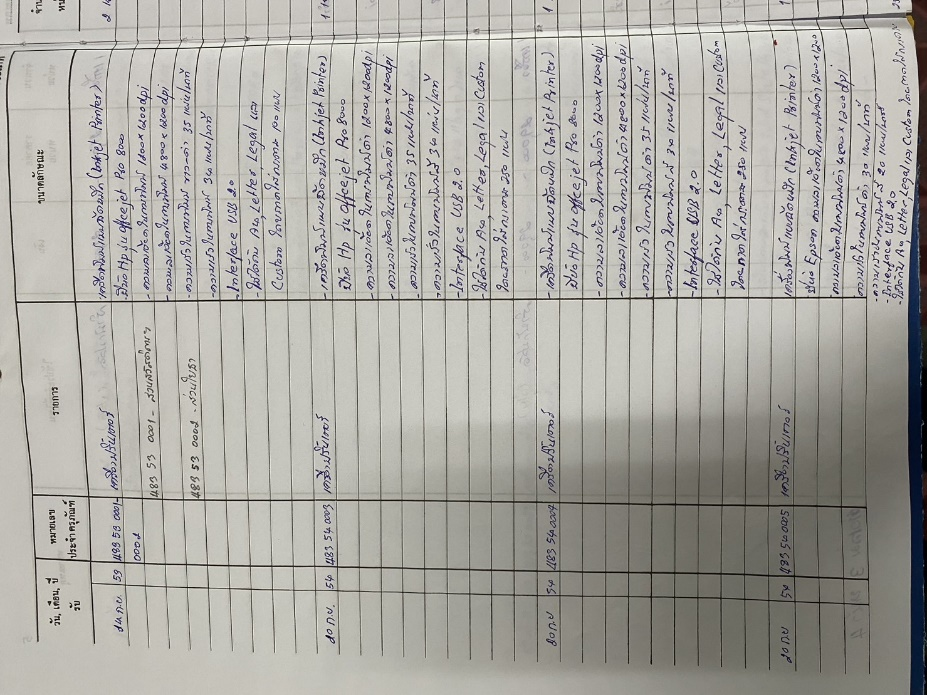 วัน, เดือน, ปี
รับ
หมายเลข
ประจำครุภัณฑ์
รายการ
ขนาดลักษณะ
24 ก.ย. 53 483 53 0001- เครื่องปริ้นเตอร์ เครื่องพิมพ์แบบฉีดหมึก (Inkjet Printer)
0002 ยี่ห้อ Hp รุ่น Officejet Pro 8000
483 53 0001 - - ความละเอียดในการพิมพ์ 1200x1200dpi
- ความละเอียดในการพิมพ์ 4800x1200dpi
483 53 0002 - - ความเร็วในการพิมพ์ ขาว-ดำ 35 แผ่น/นาที
- ความเร็วในการพิมพ์ 34 แผ่น/นาที
- Interface USB 2.0
- ใช้ได้กับ A4, Letter, Legal และ
Custom
20 ก.ย. 54 483 54 0003 เครื่องปริ้นเตอร์ - เครื่องพิมพ์แบบฉีดหมึก (Inkjet Printer)
ยี่ห้อ Hp รุ่น Officejet Pro 8000
- ความละเอียดในการพิมพ์ดำ 1200x1200dpi
- ความละเอียดในการพิมพ์สี 4800x1200dpi
- ความเร็วในการพิมพ์ดำ 35 แผ่น/นาที
- ความเร็วในการพิมพ์สี 34 แผ่น/นาที
- Interface USB 2.0
- ใช้ได้กับ A4, Letter, Legal และ Custom
250 แผ่น
20 ก.ย. 54 483 54 0004 เครื่องปริ้นเตอร์ - เครื่องพิมพ์แบบฉีดหมึก (Inkjet Printer)
ยี่ห้อ Hp รุ่น Officejet Pro 8000
- ความละเอียดในการพิมพ์ดำ 1200x1200dpi
- ความละเอียดในการพิมพ์สี 4800x1200dpi
- ความเร็วในการพิมพ์ดำ 35 แผ่น/นาที
- ความเร็วในการพิมพ์สี 34 แผ่น/นาที
- Interface USB 2.0
- ใช้ได้กับ A4, Letter, Legal และ Custom
250 แผ่น
20 ก.ย 54 483 54 0005 เครื่องปริ้นเตอร์ เครื่องพิมพ์แบบฉีดหมึก (Inkjet Printer)
Epson ความละเอียดในการพิมพ์ดำ 1200x1200
ความละเอียดในการพิมพ์สี 4800x1200dpi
ความเร็วในการพิมพ์ดำ 30 แผ่น/นาที
- ความเร็วในการพิมพ์สี 20 แผ่น/นาที
- Interface USB 2.0
- ใช้ได้กับ A4 Letter Legal และ Custom